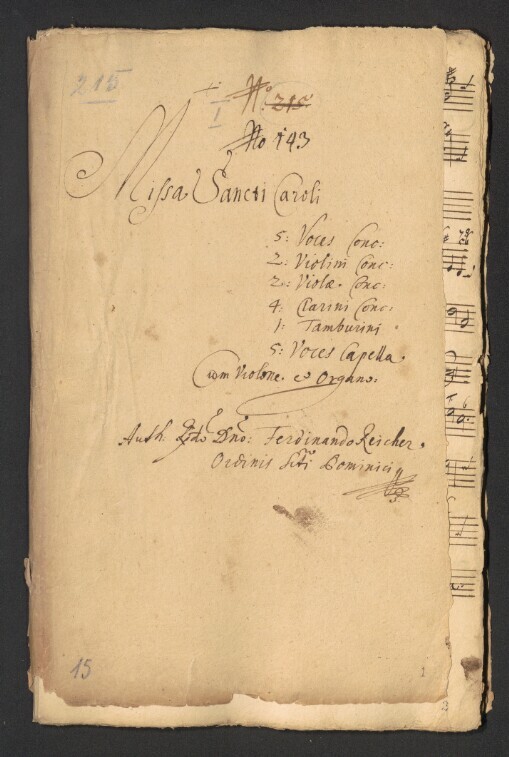 215
No. 215
1
No 143
Missa Sancti Caroli
5: Voces Conc:
2: Violini Conc:
2: Violæ. Conc:
4: Clarini Conc:
1: Tamburini.
5: Voces Capella.
Cum Violone. et Organo.
Auth: Rdo Dno: Ferdinando Reicher.
Ordinis Scti Dominici
15
1
2